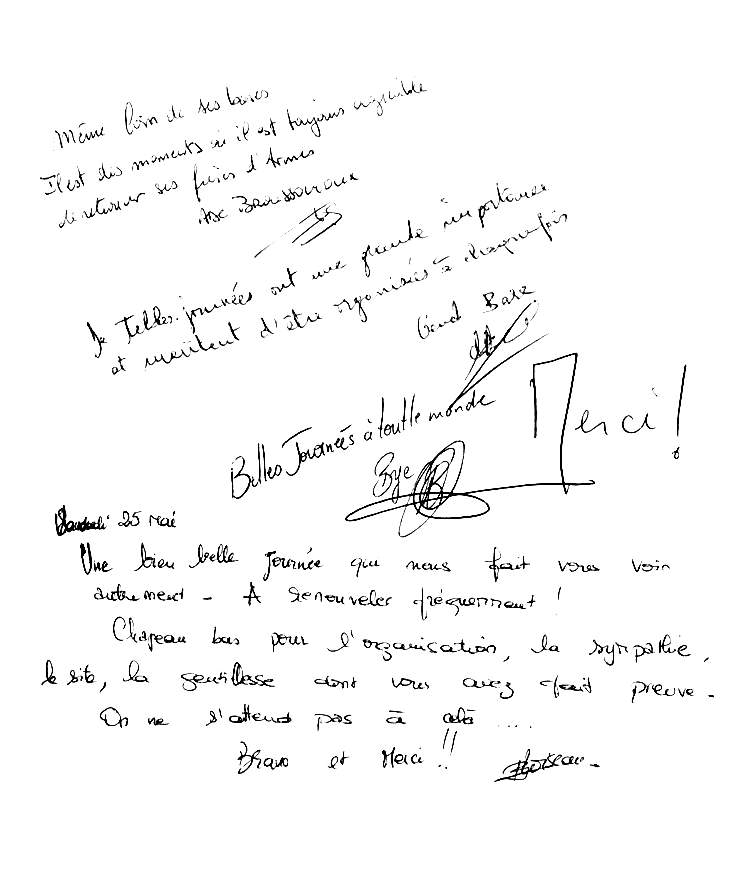 Même loin de ses bases
Il est des moments où il est toujours agréable
de retrouver ses frères d'Armes
De telles journées ont une grande importance
et méritent d'être organisées à chaque fois
Belles Journées à tout le monde
Bye
Merci !
25 mai
Une bien belle journée qui nous fait vous voir
autrement - A renouveler fréquemment !
Chapeau bas pour l'organisation, la sympathie,
le site, la gentillesse dont vous avez fait preuve -
On ne s'attend pas à celà ....
Bravo et Merci !!